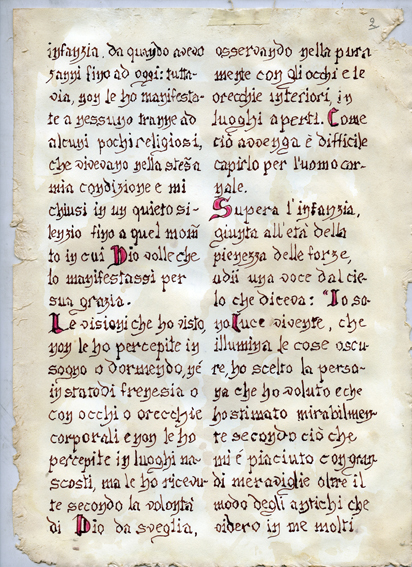 2
infanzia, da quando avevo
5 anni fino ad oggi: tutta-
via, non le ho manifesta-
te a nessuno tranne ad
alcuni pochi religiosi,
che vivevano nella stessa
mia condizione e mi
chiusi in un quieto si-
lenzio fino a quel momē
to in cui Dio volle che
lo manifestassi per
sua grazia.
Le visioni che ho visto,
non le ho percepite in
sogno o dormendo, né
in stato di frenesia o
con occhi o orecchie
corporali e non le ho
percepite in luoghi na-
scosti, ma le ho ricevu-
te secondo la volontà
di Dio da sveglia,
osservando nella pura
mente con gli occhi e le
orecchie interiori, in
luoghi aperti. Come
ciò avvenga è difficile
capirlo per l'uomo car-
nale.
Supera l'infanzia,
giunta all'età della
pienezza delle forze,
udii una voce dal cie-
lo che diceva: "Io so-
no Luce vivente, che
illumina le cose oscu-
re, ho scelto la perso-
na che ho voluto e che
ho stimato mirabilmen-
te secondo ciò che
mi è piaciuto con gran-
di meraviglie oltre il
modo degli antichi che
videro in me molti